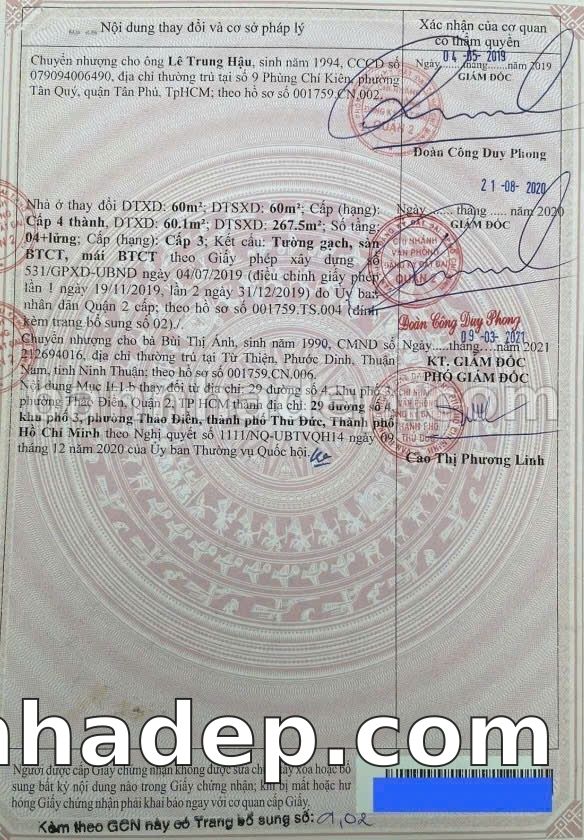 Nội dung thay đổi và cơ sở pháp lý
Xác nhận của cơ quan
có thẩm quyền
Chuyển nhượng cho ông Lê Trung Hậu, sinh năm 1994, CCCD số
079094006490, địa chỉ thường trú tại số 9 Phùng Chí Kiên, phường
Tân Quý, quận Tân Phú, TpHCM; theo hồ sơ số 001759.CN.002.
04-05-2019
Ngày......tháng......năm 2019
GIÁM ĐỐC
Đoàn Công Duy Phong
Nhà ở thay đổi DTXD: 60m²; DTSXD: 60m²; Cấp (hạng):
Cấp 4 thành, DTXD: 60.1m²; DTSXD: 267.5m²; Số tầng:
04+lửng; Cấp (hạng): Cấp 3; Kết cấu: Tường gạch, sàn
BTCT, mái BTCT theo Giấy phép xây dựng số
531/GPXD-UBND ngày 04/07/2019 (điều chỉnh giấy phép
lần 1 ngày 19/11/2019, lần 2 ngày 31/12/2019) do Ủy ban
nhân dân Quận 2 cấp; theo hồ sơ số 001759.TS.004 (đính
kèm trang bổ sung số 02)./.
21-08-2020
Ngày...... tháng ..... năm 2020
GIÁM ĐỐC
CHI NHÁNH
VĂN PHÒNG
ĐĂNG KÝ ĐẤT ĐAI
QUẬN 2
Đoàn Công Duy Phong
Chuyển nhượng cho bà Bùi Thị Ánh, sinh năm 1990, CMND số
212694016, địa chỉ thường trú tại Từ Thiện, Phước Dinh, Thuận
Nam, tỉnh Ninh Thuận; theo hồ sơ số 001759.CN.006.
Nội dung Mục II.1.b thay đổi từ địa chỉ: 29 đường số 4, khu phố 3,
phường Thảo Điền, Quận 2, TP HCM thành địa chỉ: 29 đường số 4,
khu phố 3, phường Thảo Điền, thành phố Thủ Đức, Thành phố
Hồ Chí Minh theo Nghị quyết số 1111/NQ-UBTVQH14 ngày 09
tháng 12 năm 2020 của Ủy ban Thường vụ Quốc hội.
09-03-2021
Ngày.....tháng.....năm 2021
KT. GIÁM ĐỐC
PHÓ GIÁM ĐỐC
Cao Thị Phương Linh
nhadep.com
Người được cấp Giấy chứng nhận không được sửa chữa, tẩy xóa hoặc bổ
sung bất kỳ nội dung nào trong Giấy chứng nhận; khi bị mất hoặc hư
hỏng Giấy chứng nhận phải khai báo ngay với cơ quan cấp Giấy.
Kèm theo GCN này có Trang bổ sung số: 01,02